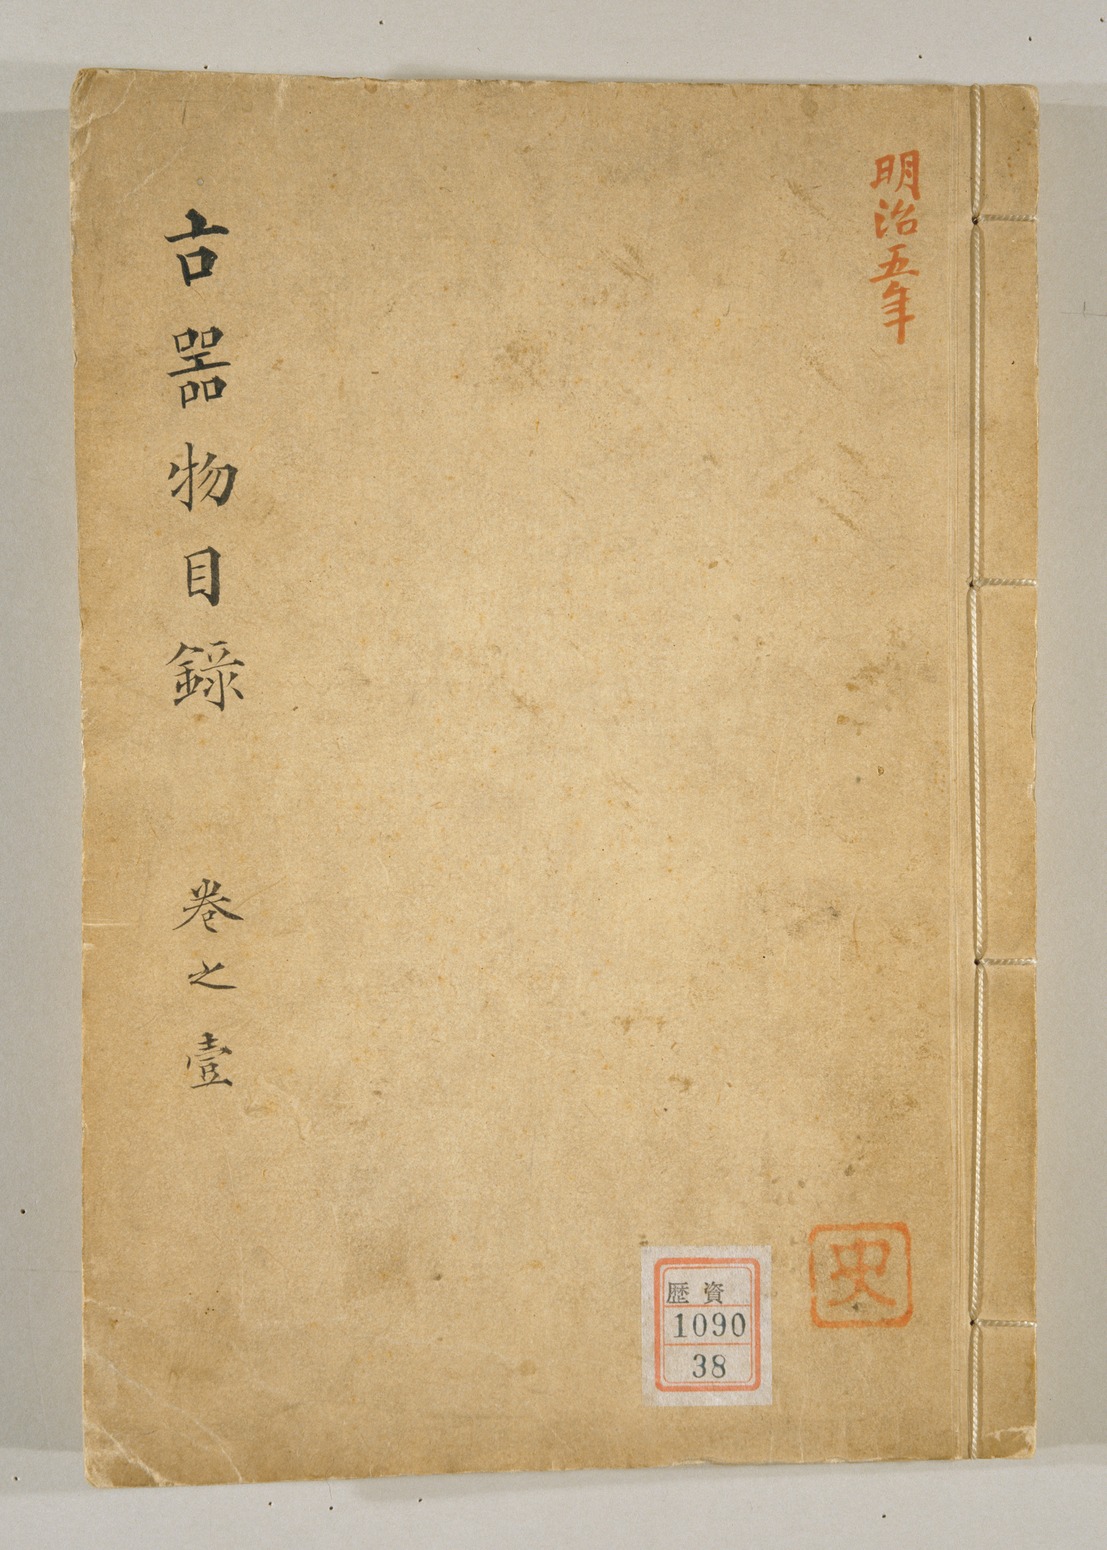 明治五年
古器物目録 巻之壹
史
歴資
1090
38